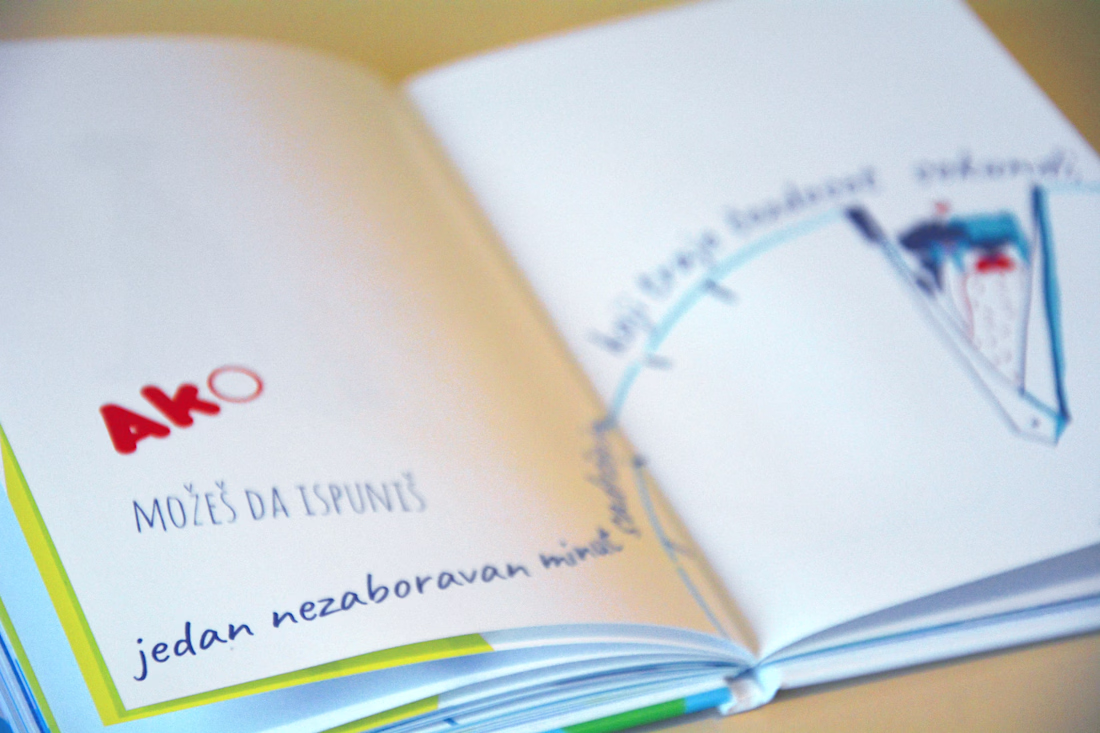 AkO
MOŽEŠ DA ISPUNIŠ
jedan nezaboravan minut
koji traje šezdeset sekundi,